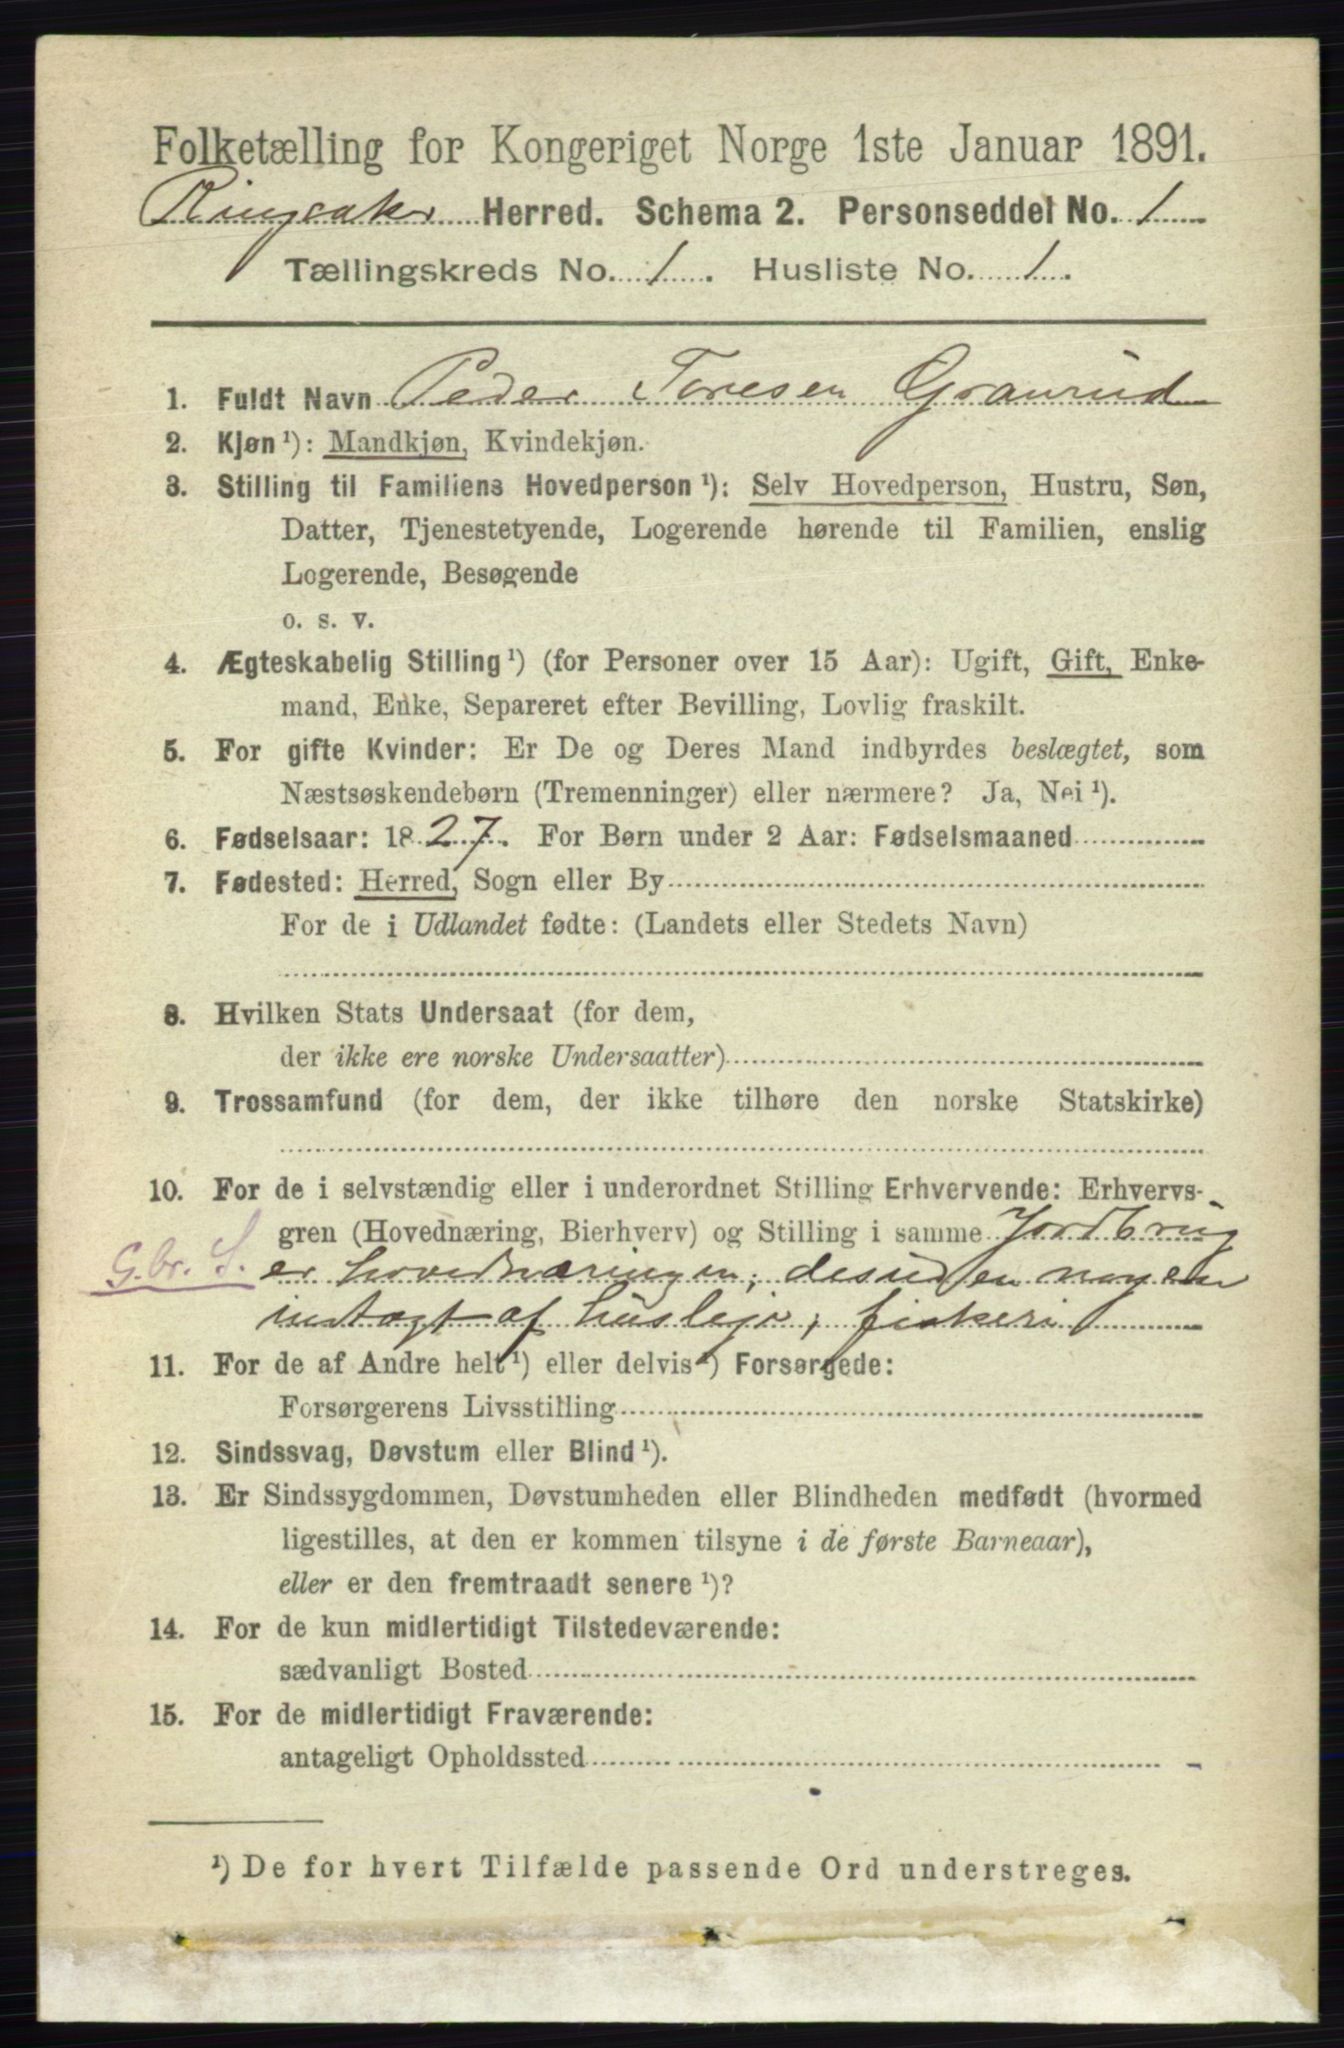 Folketælling for Kongeriget Norge 1ste Januar 1891.
Ringsaker Herred. Schema 2. Personseddel No. 1
Tællingskreds No. 1. Husliste No. 1.
1. Fuldt Navn Peder Toresen Granrud
2. Kjøn ¹): Mandkjøn, Kvindekjøn.
3. Stilling til Familiens Hovedperson ¹): Selv Hovedperson, Hustru, Søn,
Datter, Tjenestetyende, Logerende hørende til Familien, enslig
Logerende, Besøgende
o. s. v.
4. Ægteskabelig Stilling ¹) (for Personer over 15 Aar): Ugift, Gift, Enke-
mand, Enke, Separeret efter Bevilling, Lovlig fraskilt.
5. For gifte Kvinder: Er De og Deres Mand indbyrdes beslægtet, som
Næstsøskendebørn (Tremenninger) eller nærmere? Ja, Nei ¹).
6. Fødselsaar: 1827. For Børn under 2 Aar: Fødselsmaaned
7. Fødested: Herred, Sogn eller By
For de i Udlandet fødte: (Landets eller Stedets Navn)
8. Hvilken Stats Undersaat (for dem,
der ikke ere norske Undersaatter)
9. Trossamfund (for dem, der ikke tilhøre den norske Statskirke)
10. For de i selvstændig eller i underordnet Stilling Erhvervende: Erhvervs-
gren (Hovednæring, Bierhverv) og Stilling i samme Jordbrug
G.br. S. er hovednæringen, desuden nogen
intægt af husleje, fiskeri
11. For de af Andre helt ¹) eller delvis ¹) Forsørgede:
Forsørgerens Livsstilling
12. Sindssvag, Døvstum eller Blind ¹).
13. Er Sindssygdommen, Døvstumheden eller Blindheden medfødt (hvormed
ligestilles, at den er kommen tilsyne i de første Barneaar),
eller er den fremtraadt senere ¹)?
14. For de kun midlertidigt Tilstedeværende:
sædvanligt Bosted
15. For de midlertidigt Fraværende:
antageligt Opholdssted
¹) De for hvert Tilfælde passende Ord understreges.